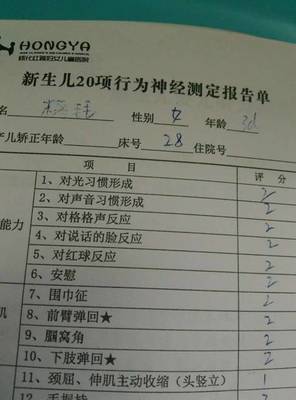 HONGYA
新生儿20项行为神经测定报告单
名 性别 女 年龄 3d
产儿矫正年龄 床号 28 住院号
项 目 评 分
1、对光习惯形成 2
2、对声音习惯形成 2
能力 3、对格格声反应 2
4、对说话的脸反应 2
5、对红球反应 2
6、安慰 2
7、围巾征 2
肌 8、前臂弹回★ 2
9、腘窝角 2
10、下肢弹回★ 2
11、颈屈、伸肌主动收缩(头竖立) 1
12、手握持 2